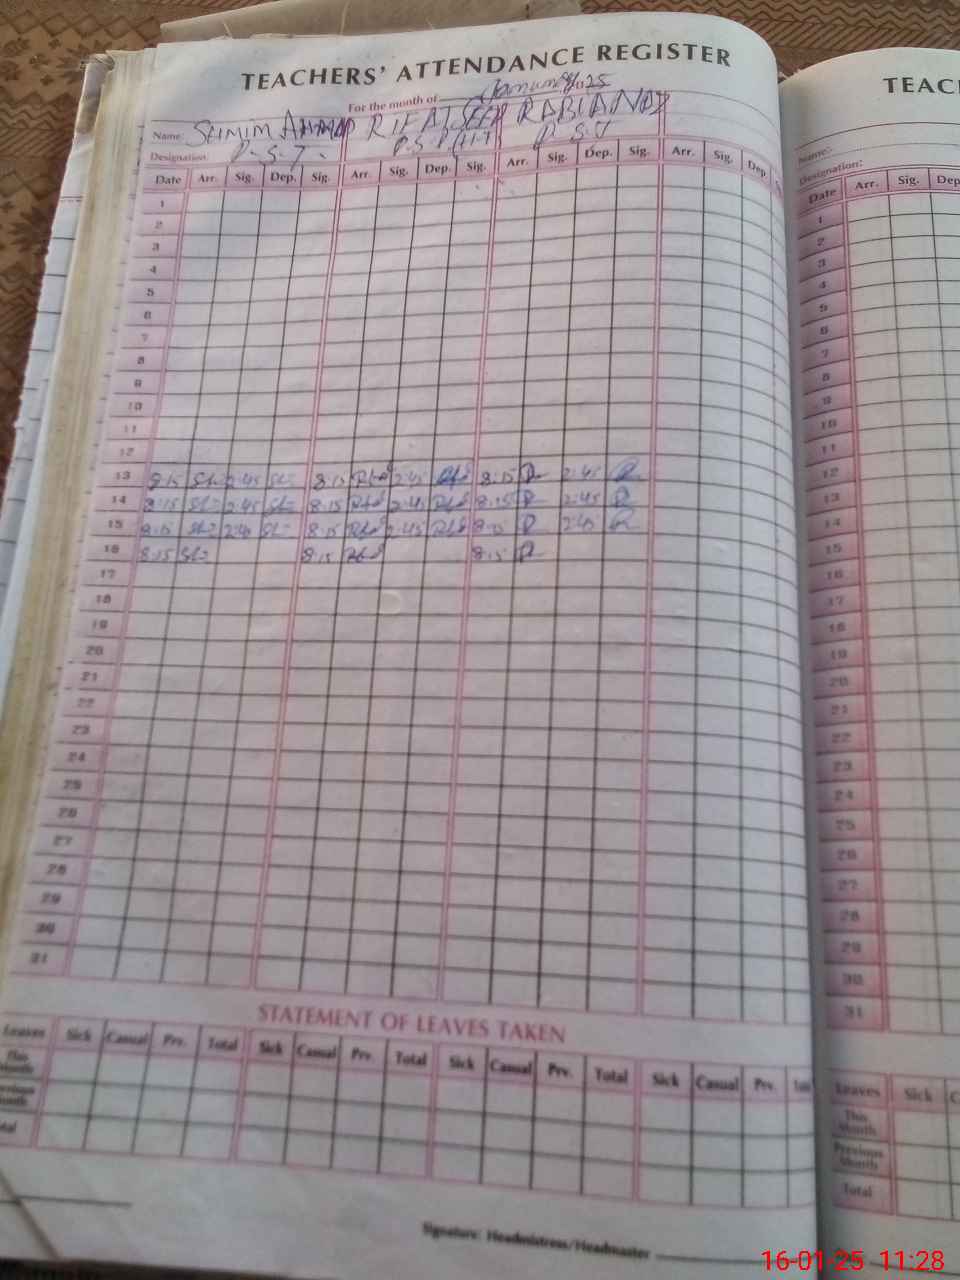 TEACHERS' ATTENDANCE REGISTER
For the month of January 2025
Name: RIFAT RABIA
Designation: P.S.T. P.S.T
Date Arr. Sig. Dep. Sig. Arr. Sig. Dep. Sig. Arr. Sig. Dep. Sig. Arr. Sig. Dep.
1
2
3
4
5
6
7
8
9
10
11
12
13 8:15 2:45 8:15 2:45 8:15 2:45
14 8:15 2:45 8:15 2:45 8:15 2:45
15 8:15 2:45 8:15 2:45 8:15 2:45
16 8:15 8:15 8:15
17
18
19
20
21
22
23
24
25
26
27
28
29
30
31
STATEMENT OF LEAVES TAKEN
Leaves Sick Casual Prv. Total Sick Casual Prv. Total Sick Casual Prv. Total Sick Casual Prv.
This Month
Signature: Headmistress/Headmaster
TEAC
Name:
Designation:
Date Arr. Sig. Dep
1
2
3
4
5
6
7
8
9
10
11
12
13
14
15
16
17
18
19
20
21
22
23
24
25
26
27
28
29
30
31
Leaves Sick C
This Month
Previous Month
Total
16-01-25 11:28